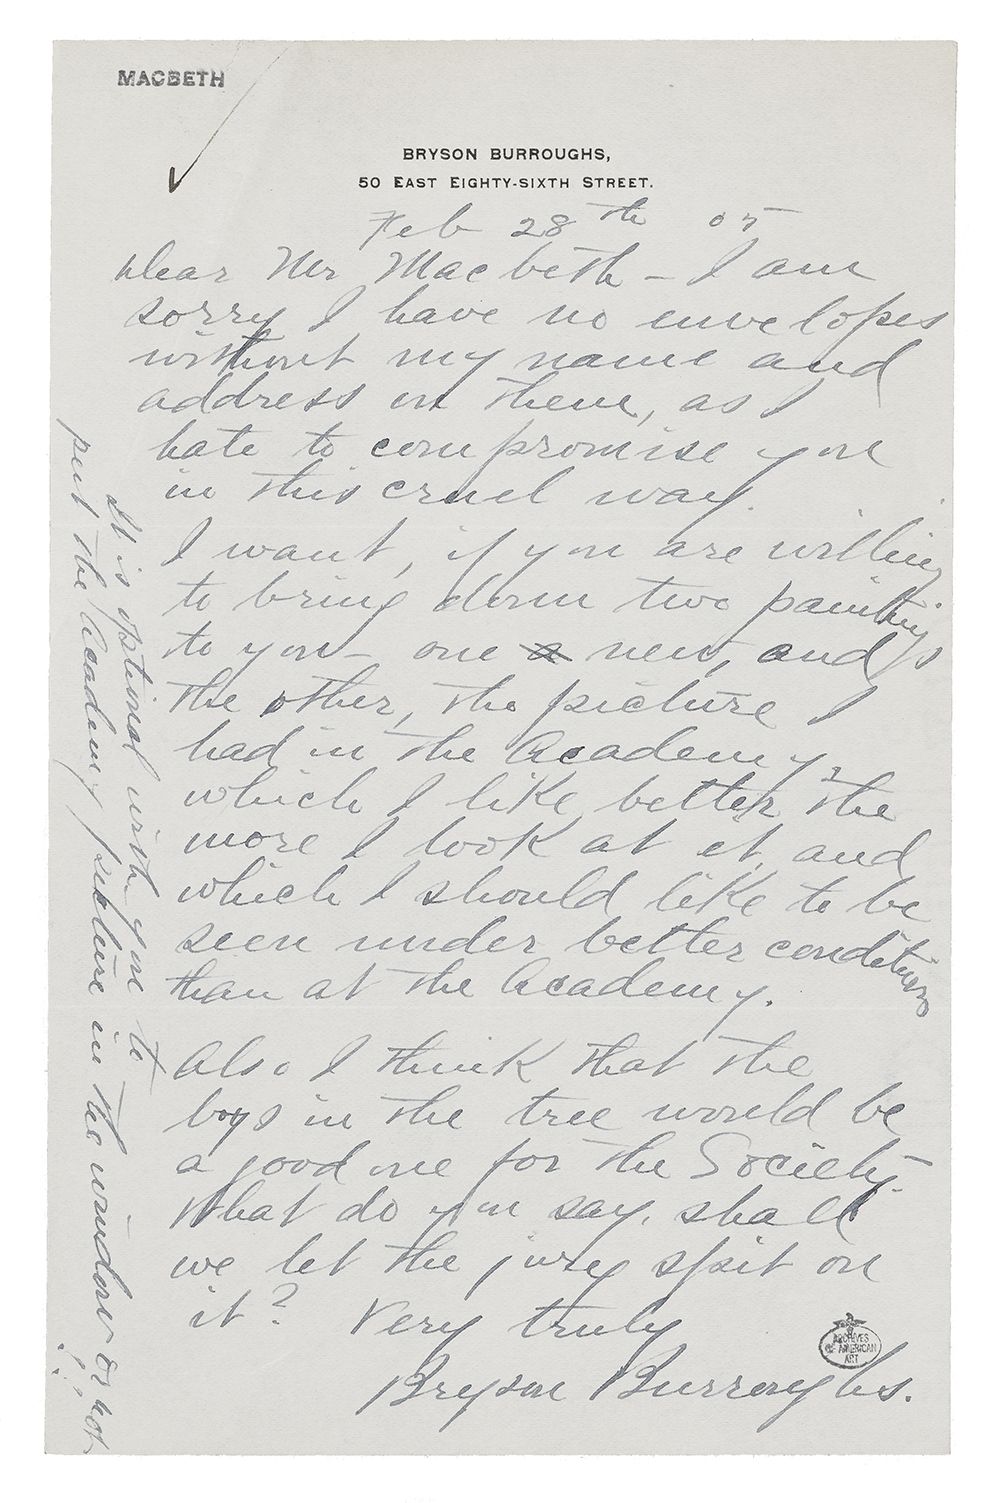 MACBETH
BRYSON BURROUGHS,
50 EAST EIGHTY-SIXTH STREET.
Feb 28th 05
Dear Mr Macbeth - I am
sorry I have no envelopes
without my name and
address on them, as I
hate to compromise you
in this cruel way.
I want, if you are willing
to bring down two paintings
to you - one a new, and
the other, the picture I
had in the Academy,
which I like better the
more I look at it, and
which I should like to be
seen under better conditions
than at the Academy.
Also I think that the
boys in the tree would be
a good one for the Society-
What do you say, shall
we let the jury spit on
it? Very truly
Bryson Burroughs.
It is optional with you to
put the Academy picture in the window or not
!!
ARCHIVES
OF AMERICAN
ART